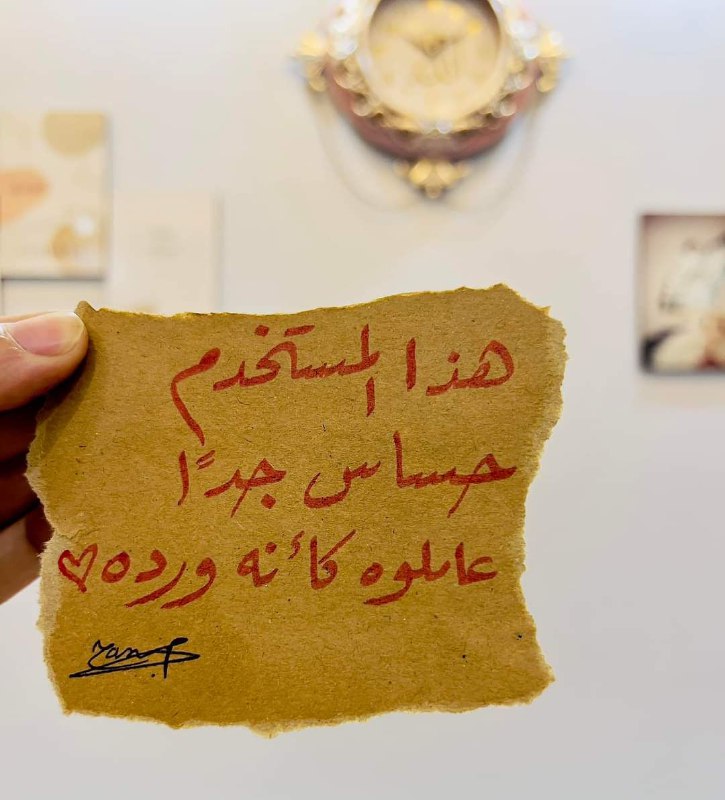 هذا المستخدم
حساس جدًا
عاملوه كأنه ورده♡